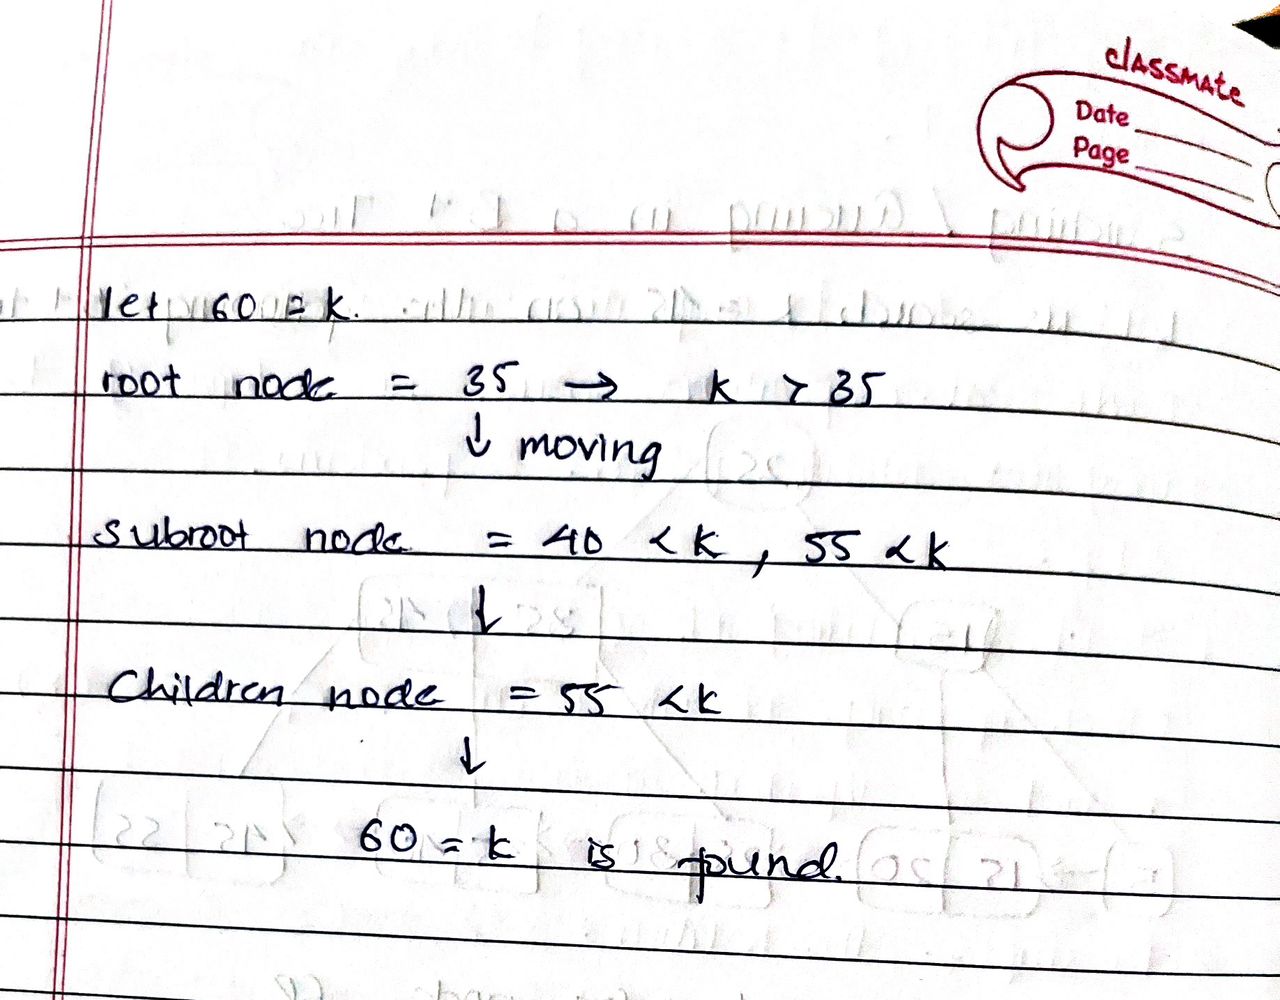 classmate
Date
Page
let 60 = k.
root node = 35 → k > 35
↓ moving
subroot node = 40 < k , 55 < k
↓
Children node = 55 < k
↓
60 = k is found.